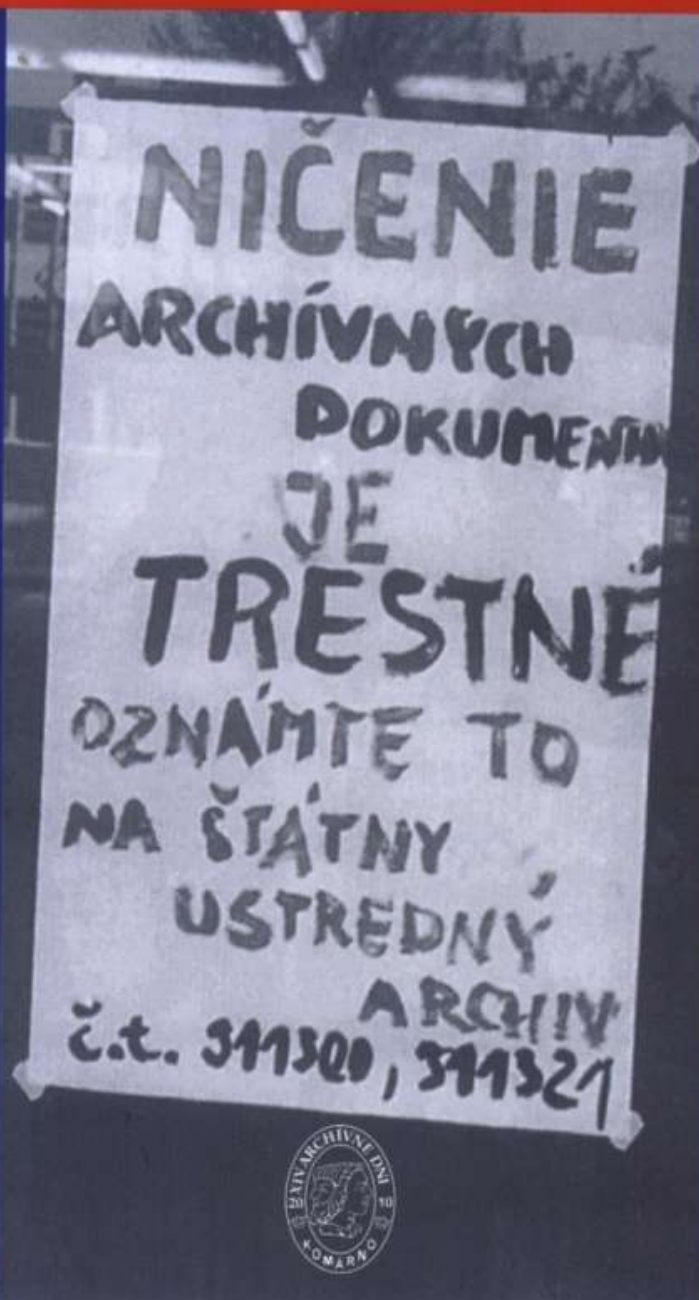 NIČENIE
ARCHÍVNYCH
DOKUMENTOV
JE
TRESTNÉ
OZNÁMTE TO
NA ŠTÁTNY
USTREDNÝ
ARCHIV
č.t. 311300, 311321
XIV ARCHÍVNE DNI
20 10
KOMÁRNO